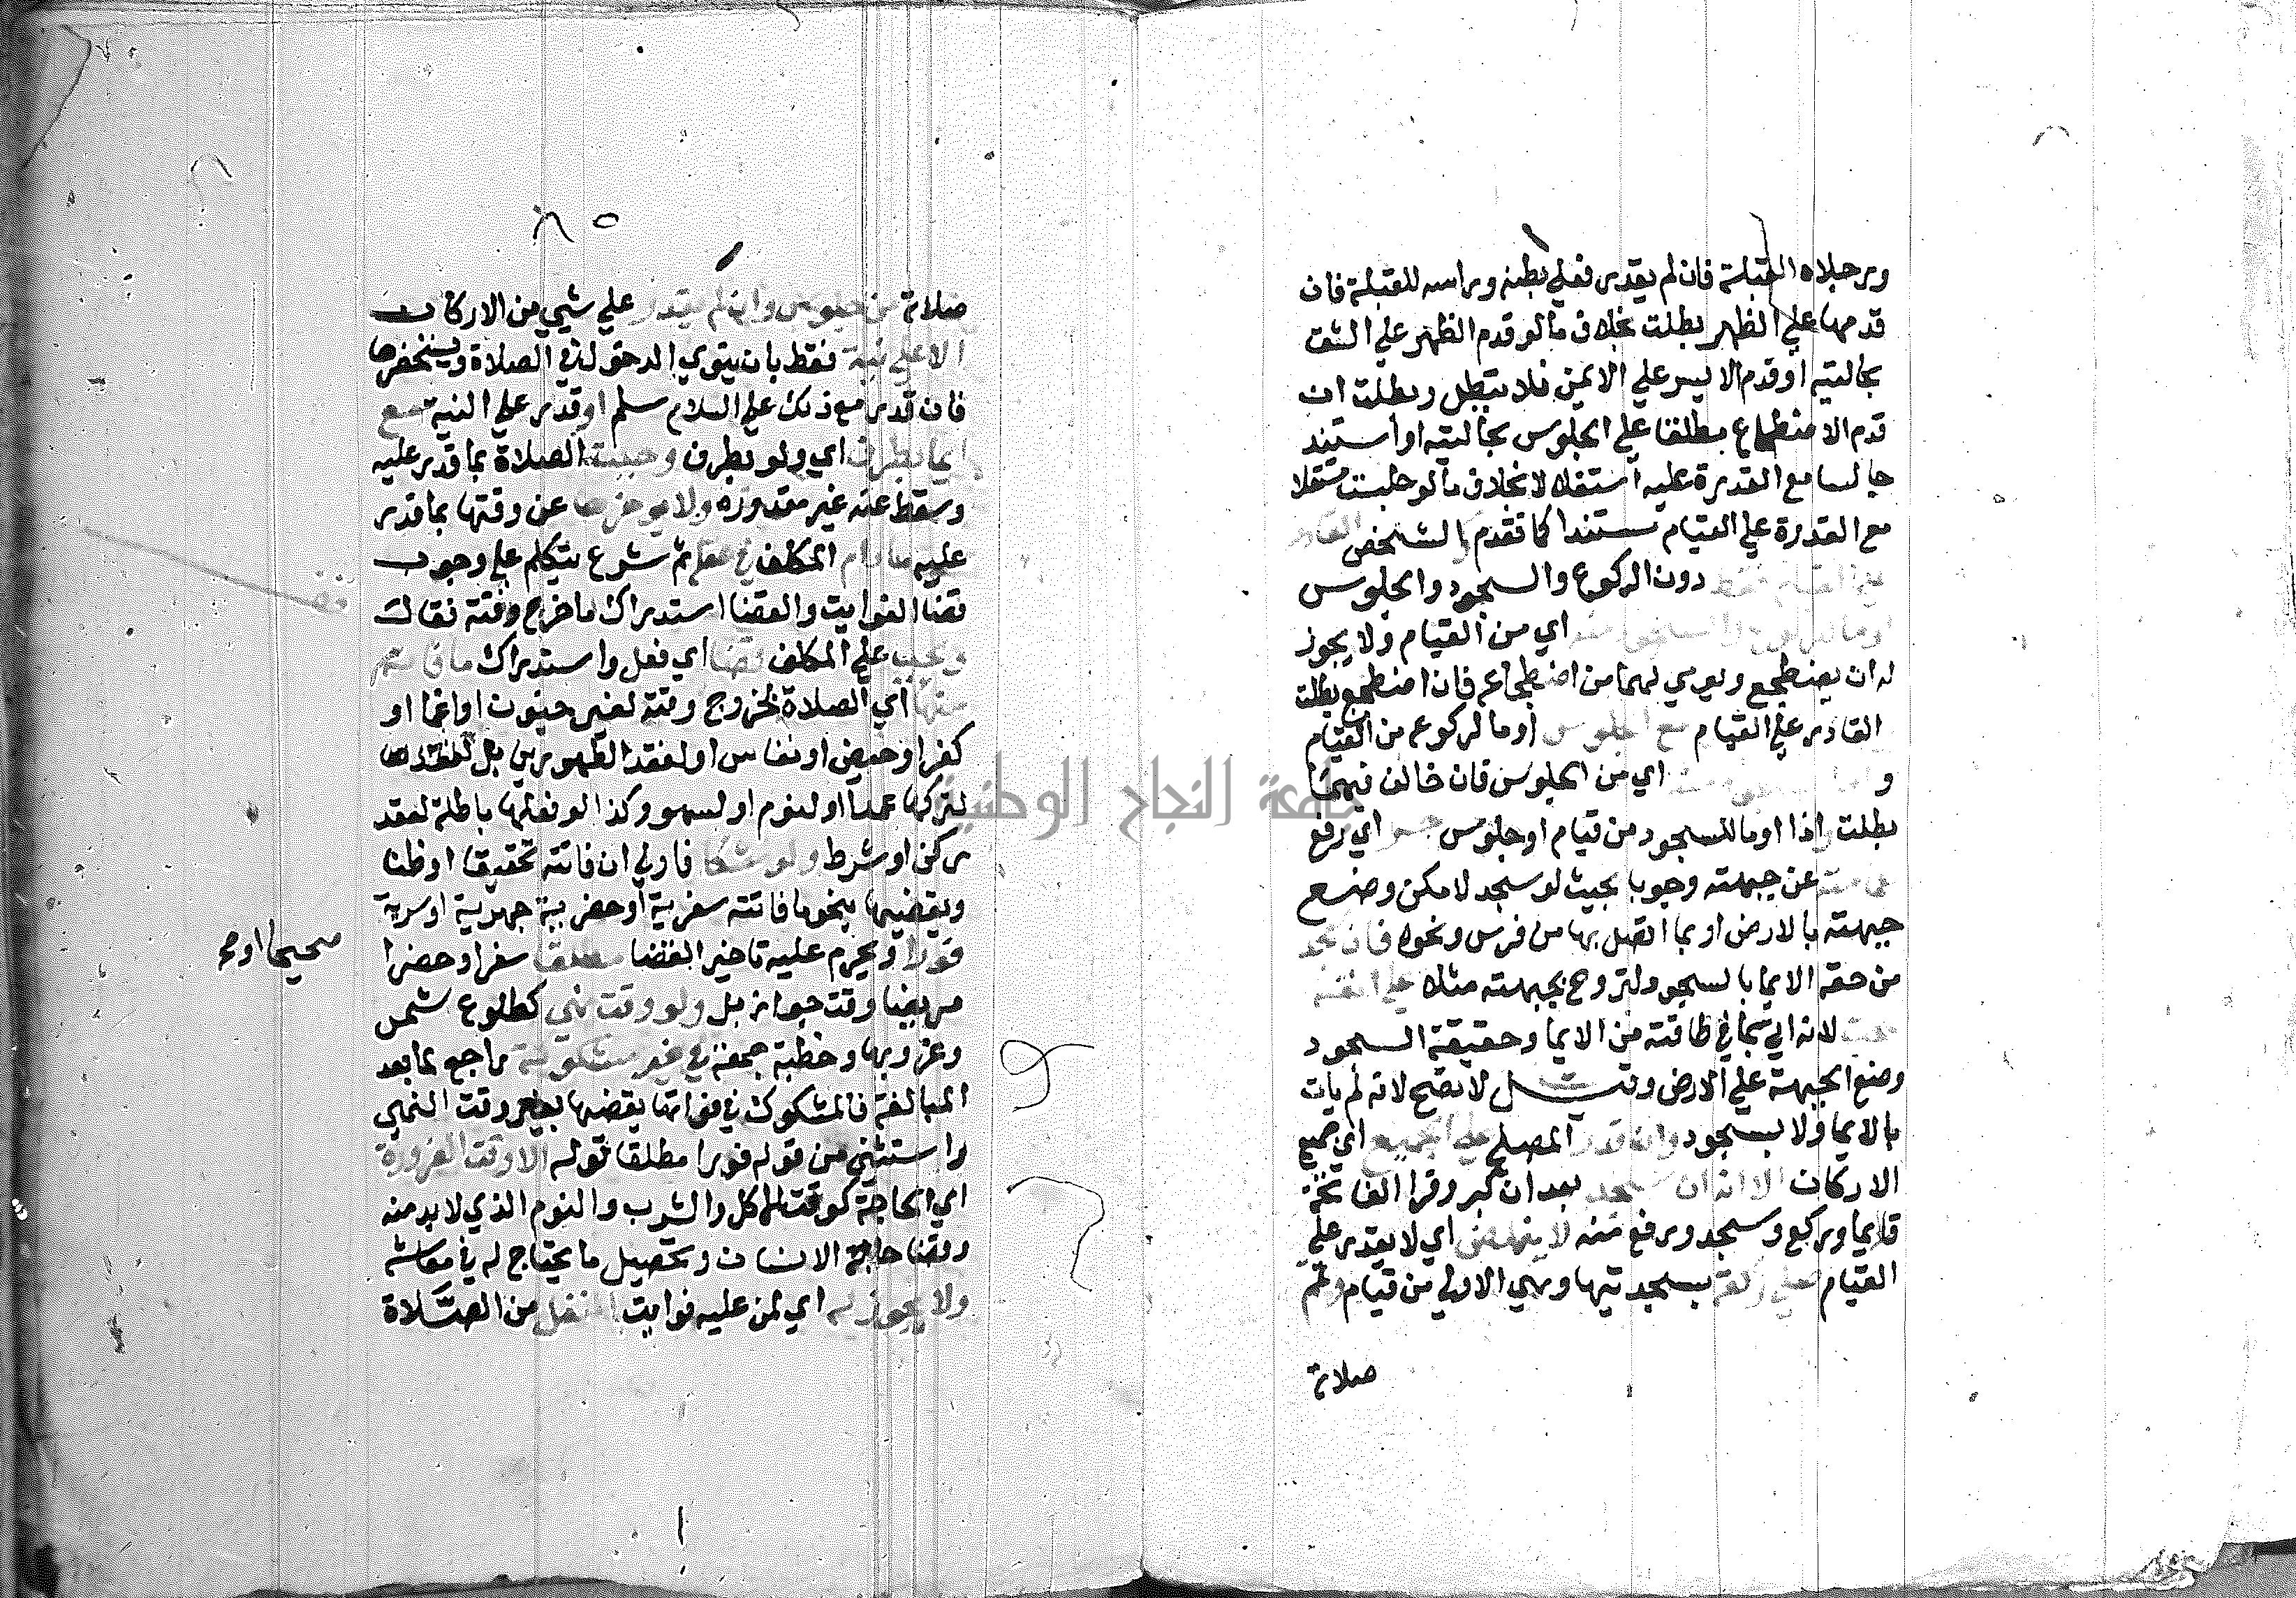 ورجلاه القبلة فان لم يقدر فعلي بطنه وراسه للقبلة فان
قدمها علي الظهر بطلت بخلاف ما لو قدم الظهر علي الشق
بحالتيه او قدم الايسر علي الايمن فلا تبطل وبطلت ان
قدم الاضطجاع مطلقا علي الجلوس بحالتيه او استند
جالسا مع القدرة عليه استقلالا بخلاف ما لو جلس مستقلا
مع القدرة علي القيام مستندا كما تقدم الشخص القادر
علي القيام فقط دون الركوع والسجود والجلوس
اوما للركوع والسجود منه اي من القيام ولا يجوز
له ان يضطجع ويومي لهما من اضطجاعه فان اضطجع بطلت
القادر علي القيام مع الجلوس اوما لركوعه من القيام
و اي من الجلوس فان خالف فيهما
بطلت واذا اوما للسجود من قيام او جلوس حسر اي رفع
عمامته عن جبهته وجوبا بحيث لو سجد لامكن وضع
جبهته بالارض او بما اتصل بها من فرش ونحوه فان سجد
من حقه الايما بالسجود لتروح بجبهته مثلا علي انفه
صحت لانه اتي بما في طاقته من الايما وحقيقة السجود
وضع الجبهة علي الارض وقيل لا تصح لانه لم يات
بالايما ولا بسجود وان قدر المصلي علي الجميع اي جميع
الاركان الا انه ان سجد بعد ان كبر وقرا الفاتحة
قايما وركع وسجد ورفع منه لا ينهض اي لا يقدر علي
القيام صلي ركعة بسجدتيها وهي الاولي من قيام وتمم
صلاته
٨٥
صلاته من جلوس وان لم يقدر علي شيي من الاركان
الا علي نية فقط بان ينوي الدخول في الصلاة ويستحضرها
فان قدر مع ذلك علي السلام سلم او قدر علي النية مع
ايما بطرف اي ولو بطرف وجبت الصلاة بما قدر عليه
وسقط عنه غير مقدوره ولا يوخرها عن وقتها بما قدر
عليه ما دام المكلف في عقله ثم شرع يتكلم علي وجوب
قضا الفوايت والقضا استدراك ما خرج وقته فقال
ويجب علي المكلف قضا اي فعل واستدراك ما فاته
منها اي الصلاة بخروج وقته لغير جنون او اغما او
كفر او حيض او نفاس او لفقد الطهورين بل
لتركها عمدا او لنوم او لسهو وكذا لو فعلها باطلة لفقد
ركن او شرط ولو شكا فاولي ان فاتته تحقيقا او ظنا
ويقضيها بنحو ما فاتته سفرية او حضرية جهرية او سرية
فورا ويحرم عليه تاخير القضا مطلقا سفرا وحضرا
صحيحا او مر
مريضا وقت جواز بل ولو وقت نهي كطلوع شمس
وغروبها وخطبة جمعة في غير مشكوكة راجع لما بعد
المبالغة فالمشكوك في فواتها يقضيها بغير وقت النهي
واستثني من قوله فورا مطلقا قوله الا وقت الضرورة
اي الحاجة كوقت الاكل والشرب والنوم الذي لا بد منه
وقضا حاجة الانسان وتحصيل ما يحتاج له في معاشه
ولا يجوز له اي لمن عليه فوايت التنفل من الصلاة